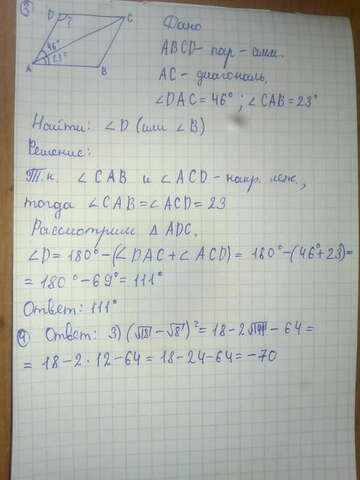 ③ D ? C
46°
23°
A B
Дано
ABCD - пар-амм.
AC - диагональ.
∠DAC = 46°; ∠CAB = 23°
Найти: ∠D (или ∠B)
Решение:
Т.к. ∠CAB и ∠ACD - накр. леж.,
тогда ∠CAB = ∠ACD = 23
Рассмотрим △ADC.
∠D = 180° - (∠DAC + ∠ACD) = 180° - (46° + 23) =
= 180° - 69° = 111°
Ответ: 111°
④ Ответ: 3) (√18 - √8)² = 18 - 2√144 - 64 =
= 18 - 2 · 12 - 64 = 18 - 24 - 64 = -70